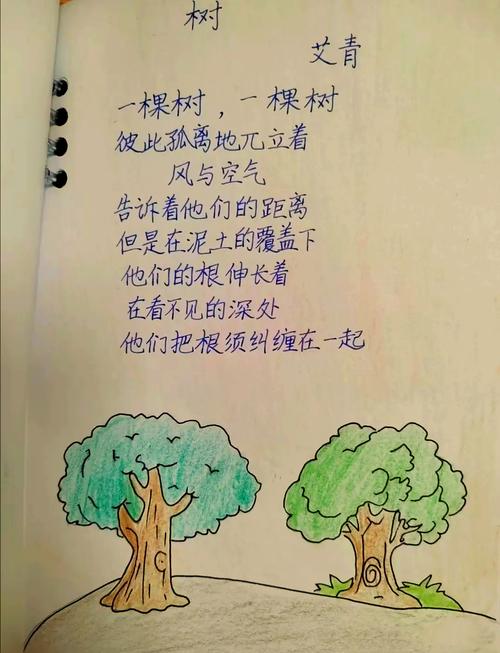 树
艾青
一棵树，一棵树
彼此孤离地兀立着
风与空气
告诉着他们的距离
但是在泥土的覆盖下
他们的根伸长着
在看不见的深处
他们把根须纠缠在一起